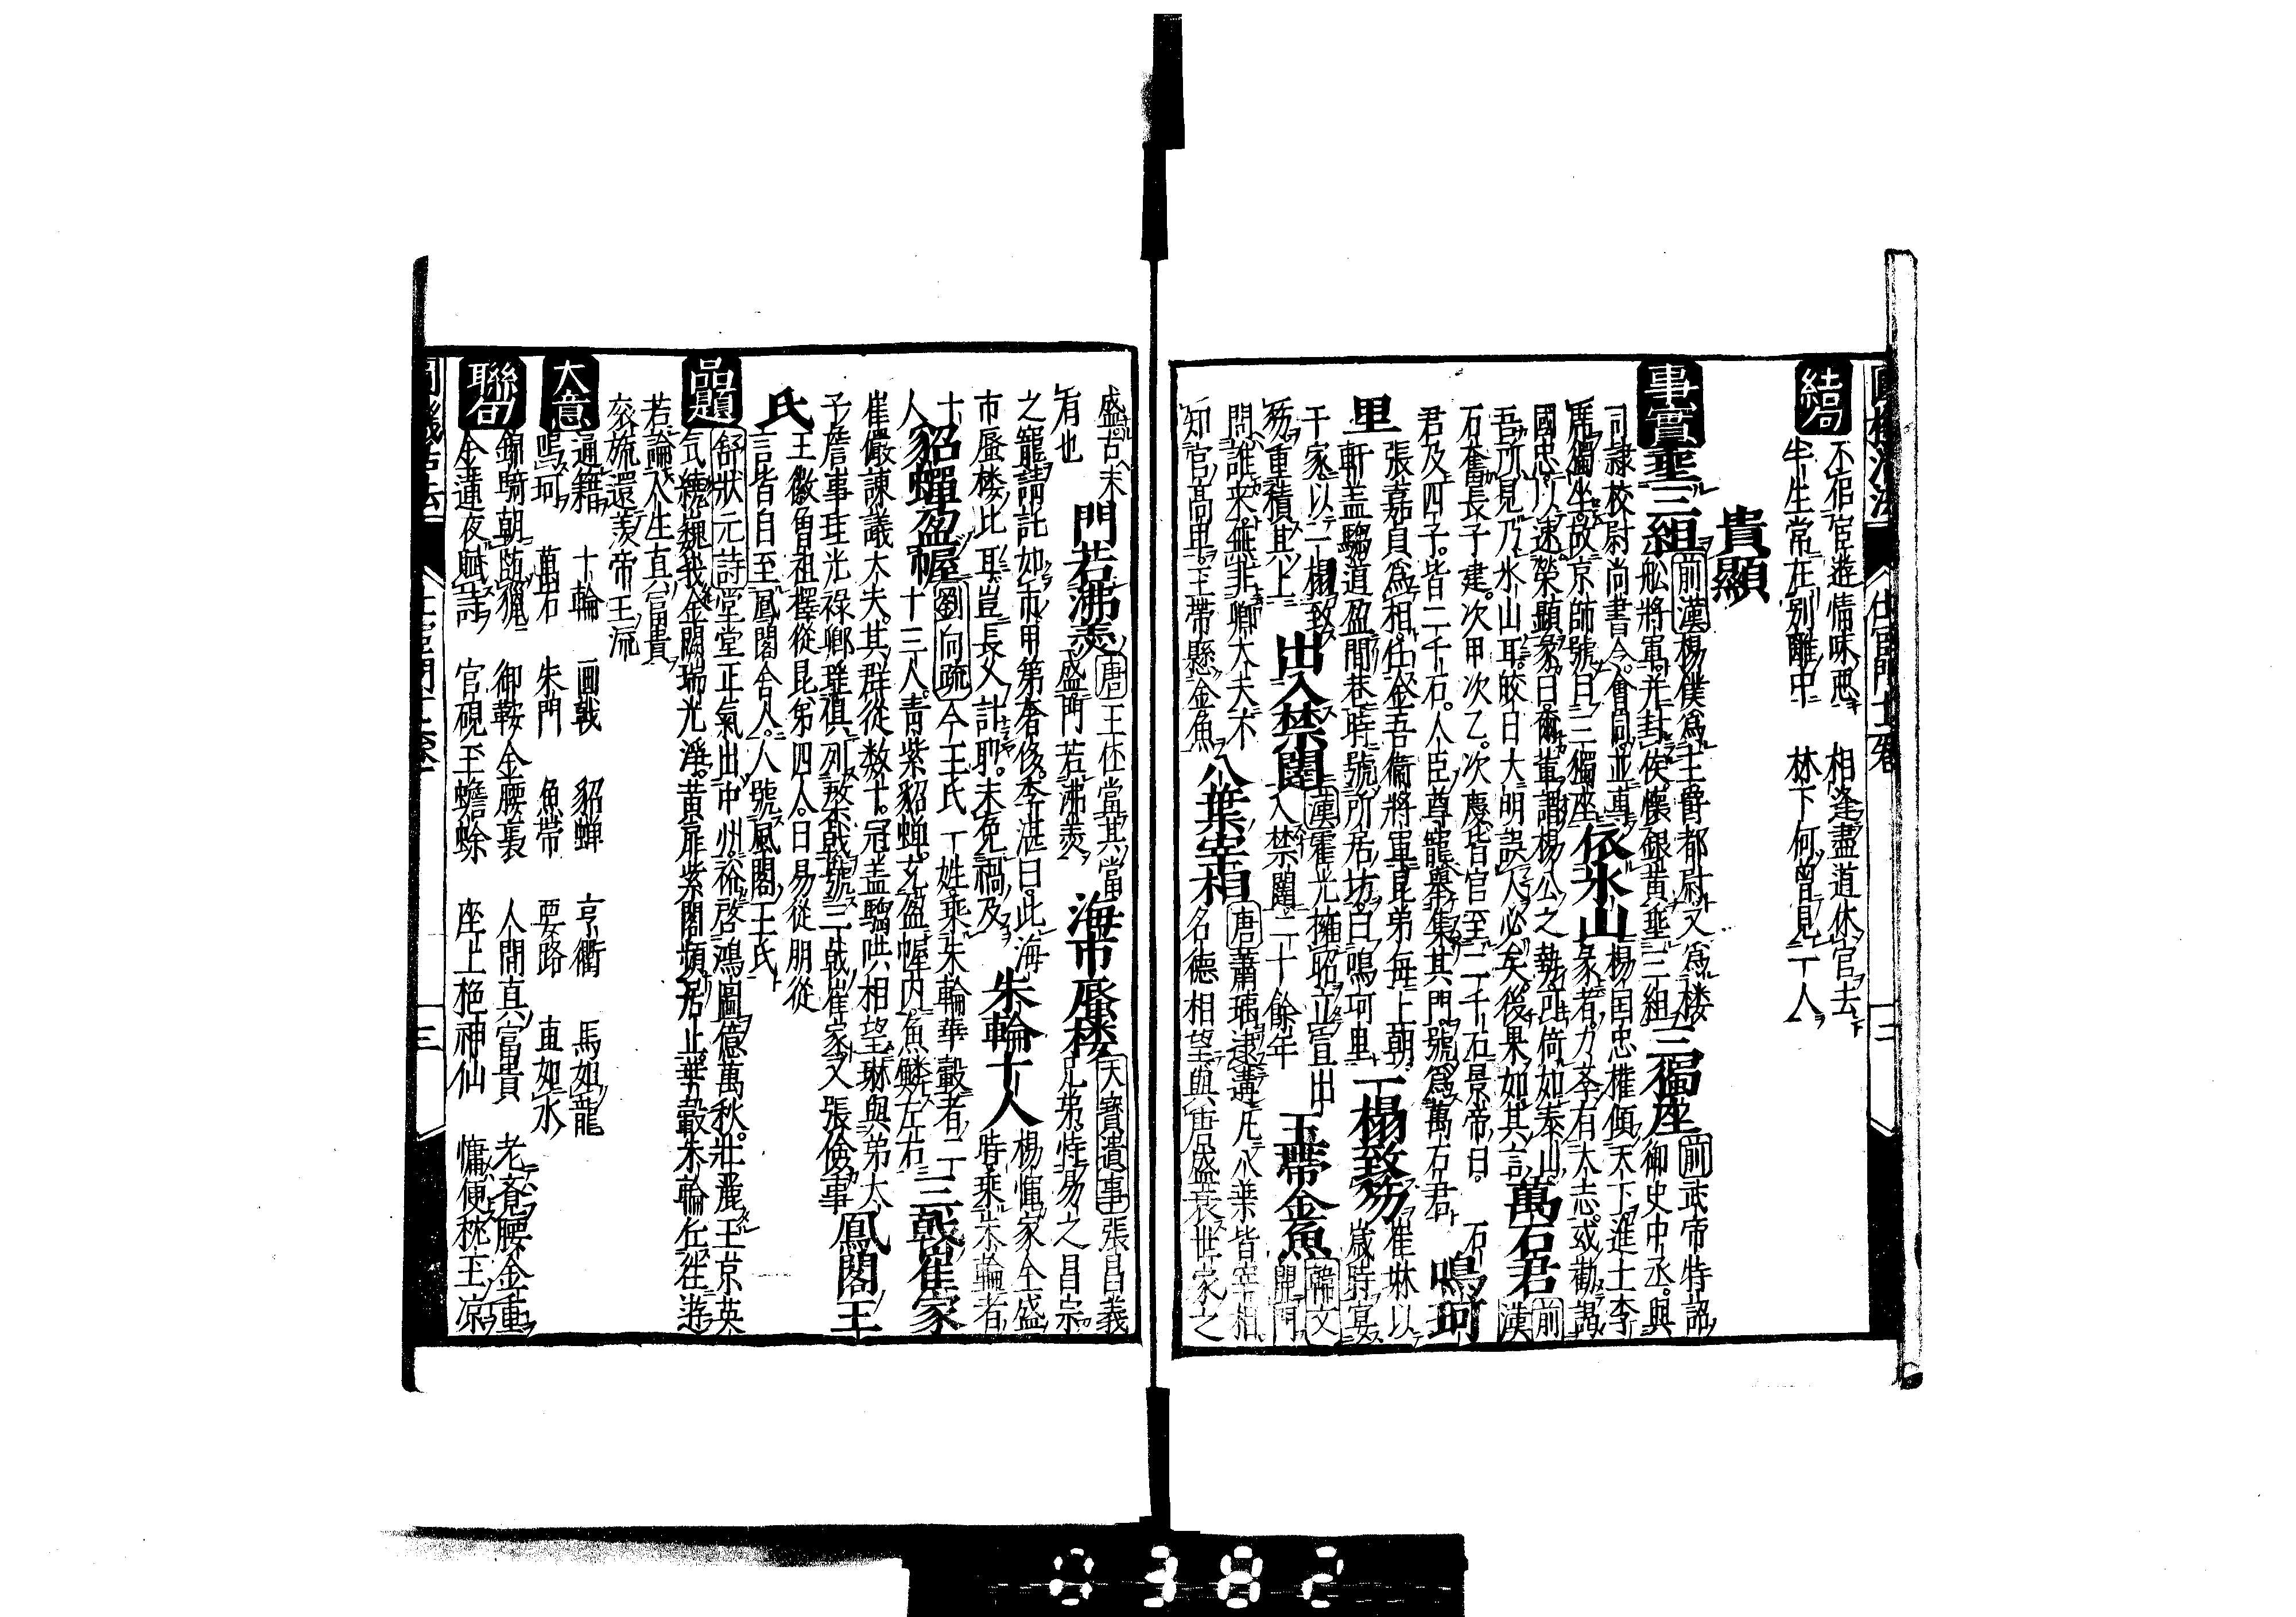 圓機活法 仕官門十一卷 二
結句 不侶宦遊情味悪 相逢盡道休官去
半生常在別離中 林下何曽見一人
貴顯
事實 垂三組 前漢 楊僕爲主爵都尉又爲楼
舩將軍并封侯懷銀黄垂三組 三獨座 前 武帝特詔
御史中丞與
司隷校尉尚書令會同並專
席獨坐故京師號曰三獨座 依氷山 楊国忠權傾天下進士李
彖者力荅有大志或勸謁
國忠以速榮顯彖曰爾輩謂楊公之勢可倚如泰山
吾所見乃氷山耳皎日大明誤人必矣後果如其言 萬石君 前漢 石
石奮長子建次甲次乙次慶皆官至二千石景帝曰
君及四子皆二千石人臣尊寵舉集其門號爲萬石君 鳴珂
里 張嘉貞爲相任金吾衛將軍昆弟毎上朝
軒盖騶道盈閭巷時號所居坊曰鳴珂里 一榻致笏 崔琳以
歳時宴
于家以一榻致
笏重積其上 出入禁闥 漢 霍光擁昭立宣出
入禁闥二十餘年 玉帶金魚 韓文
開門
問誰来無非卿大夫不
知官髙卑玉帶縣金魚 八葉宰相 唐 蕭瑀逮遘凡八葉皆宰相
名德相望與唐盛衰世家之
盛古未
有也 門若沸羮 唐 王伾當其當
盛門若沸羮 海市蜃楼 天寳遺事 張昌義
兄弟恃易之昌宗
之寵請託如市甲第奢侈李湛曰此海
市蜃楼比耳豈長久計耶未免禍及 朱輪十人 楊惲家全盛
時乗朱輪者
十
人 貂蟬盈幄 劉向疏 今王氏一姓乘朱輪華轂者二
十三人青紫貂蝉充盈幄内魚鱗左右 三戟崔家
崔儼諫議大夫其群從数十冠盖騶哄相望琳與弟太
子詹事珪光祿卿瑶俱列棨戟號三戟崔家又張儉事 鳳閣王
氏 王徽曽祖擇從昆弟四人曰易從朋從
言皆自至鳳閣舎人人號鳳閣王氏
品題 舒狀元詩 堂堂正氣出中州裕啓鴻圖億萬秋壯麗玉京英
気繞巍我金闕瑞光浮黄扉紫閣頻居止華轂朱輪任徃遊
若論人生真富貴
衮旒還羨帝王流
大意 通籍 十輪 画戟 貂蝉 亨衢 馬如龍
鳴珂 萬石 朱門 魚帯 要路 車如水
聯句 錦騎朝臨獵 御鞍金腰褭 人間真富貴 老脊腰金重
金蓮夜賦詩 官硯玉蟾蜍 座上艳神仙 慵便枕玉凉
圓機活法 仕官門十一卷 三